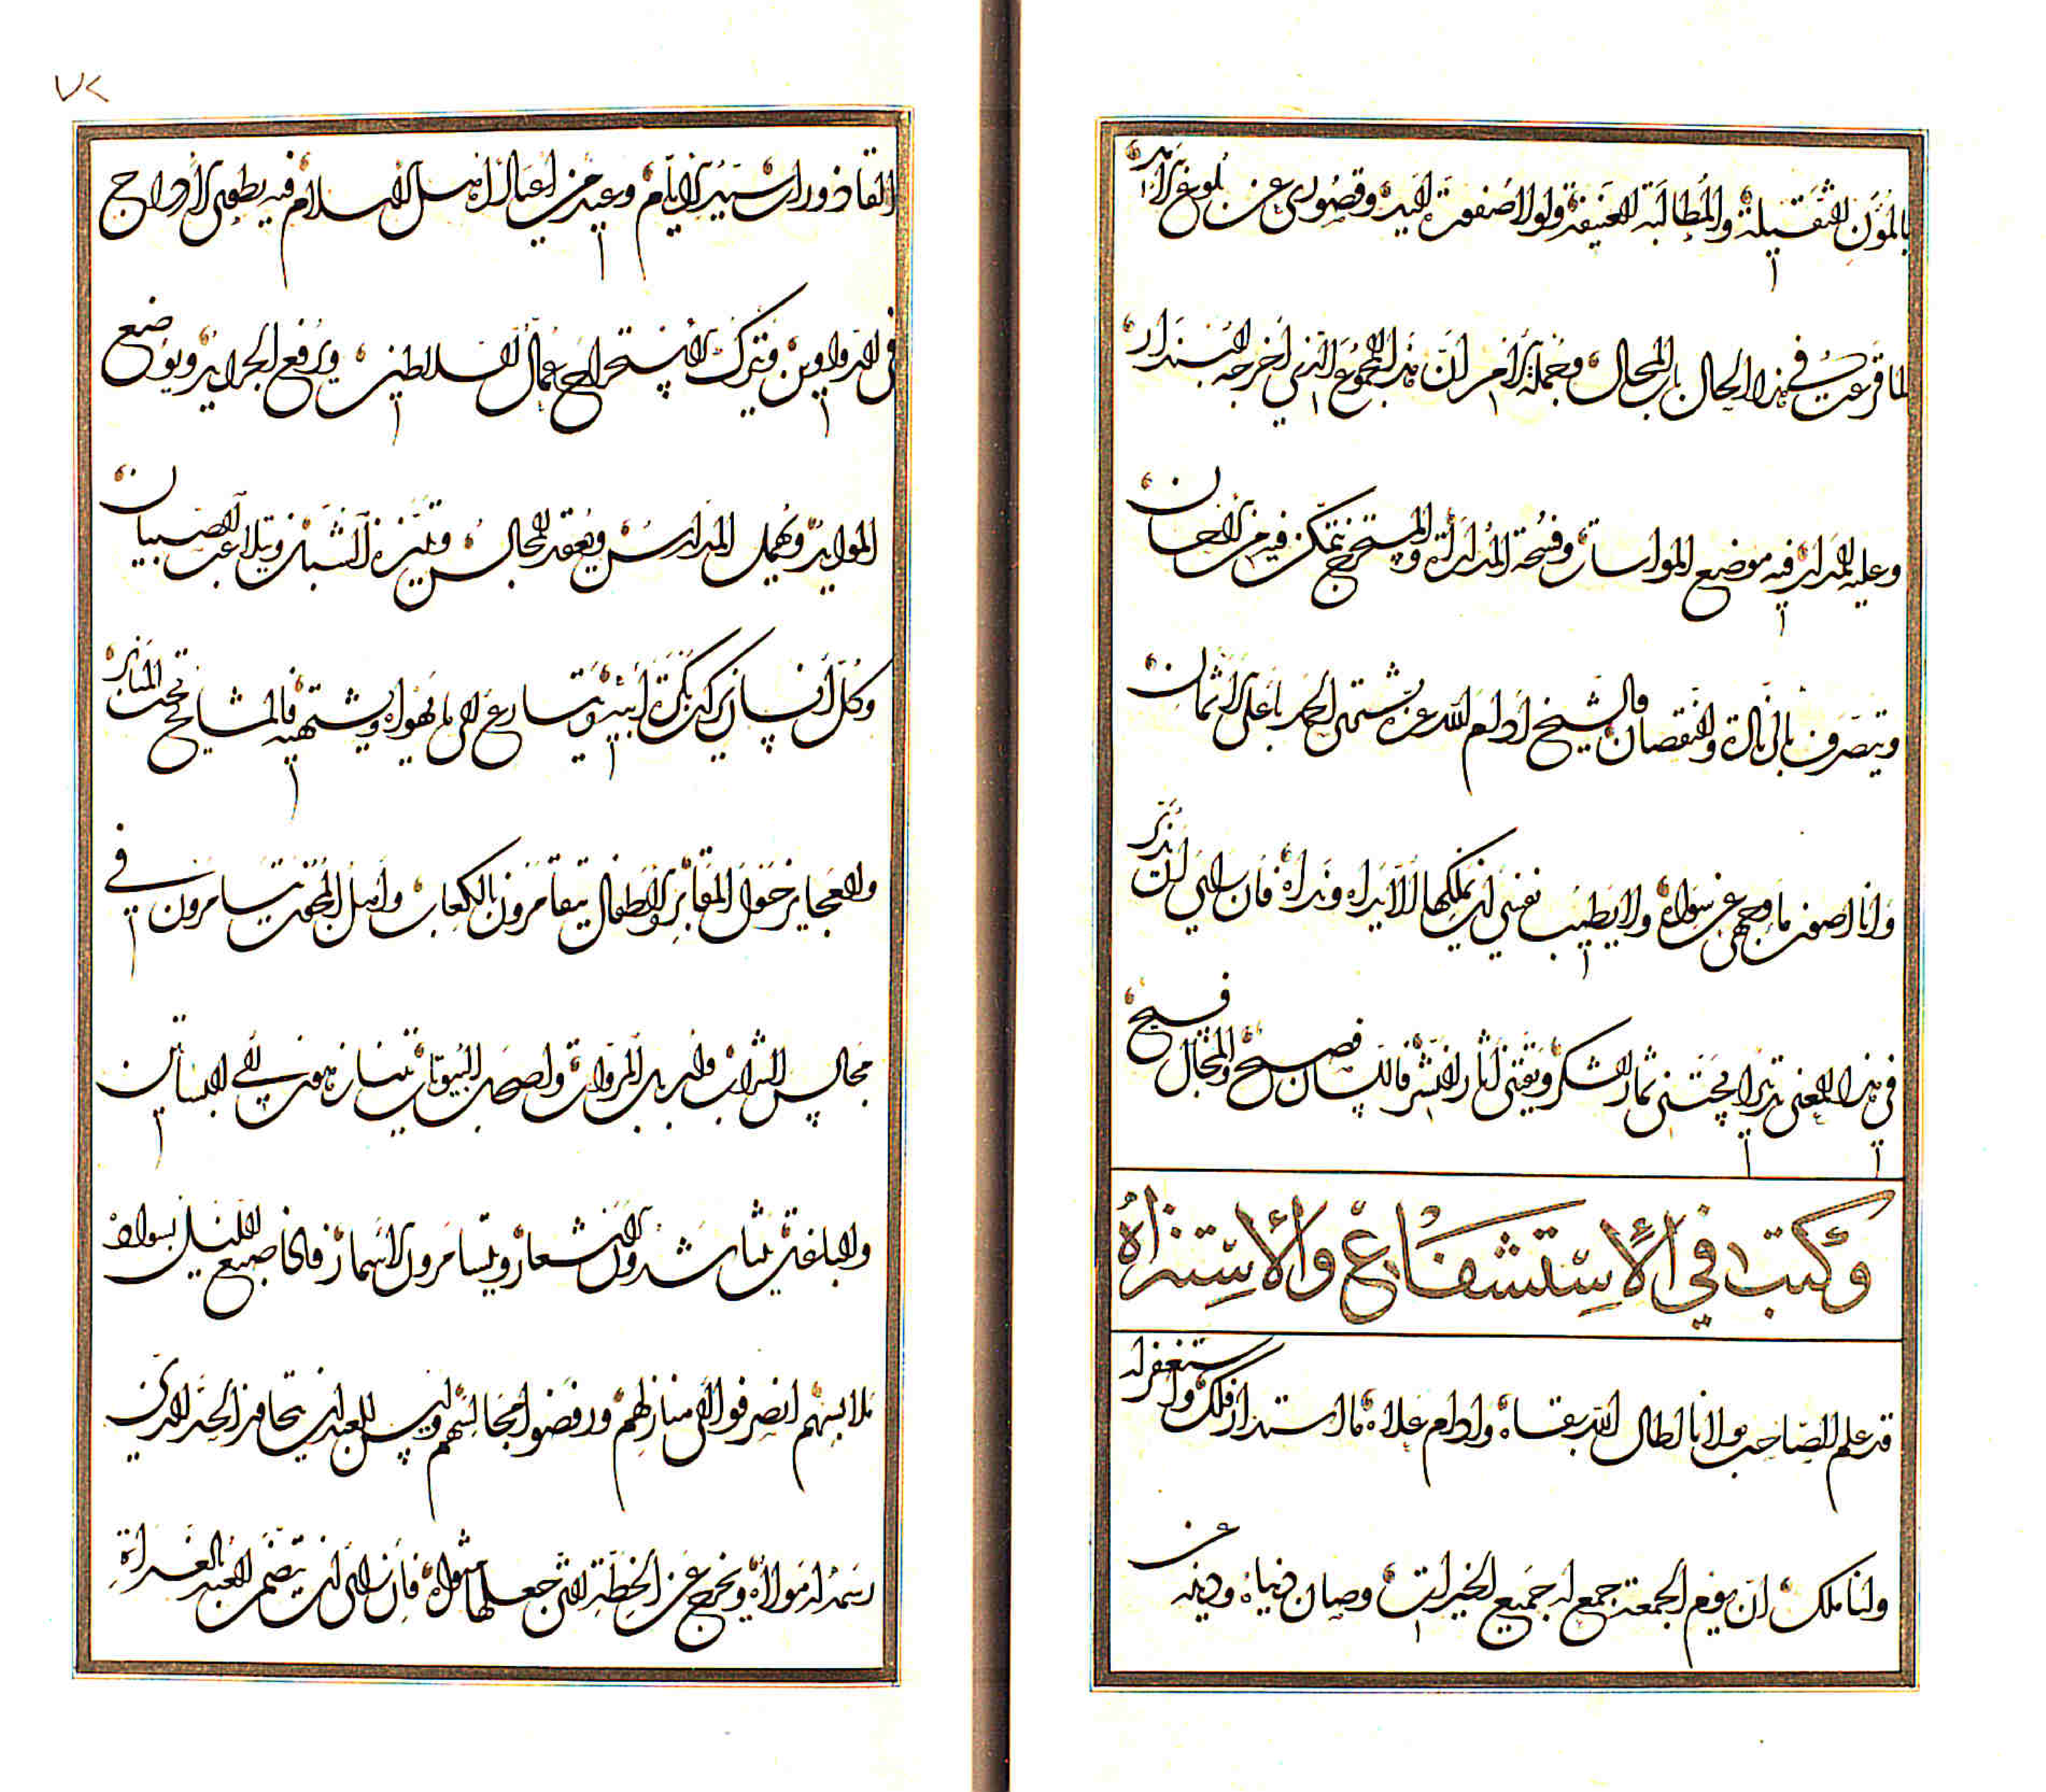 بالمُؤَنِ الثقيلة والمُطالَبة العنيفة ولولا صفوة اليد وقصوري عن بلوغ
لما قرعت في هذا الحال باب المحال وجملة الأمر ان هذا المجموع الذي اخرجه البندار
وعليه المدار فيه موضع المواساة وفسحة المداراة والمستخرج يتمكن فيه من
ويتصرف بالزيادة والنقصان والشيخ ادام الله عزه يشتري الحمد باعلى الاثمان
وانا اصون ماء وجهي عن سواه ولا يطيب نفسي ان تملكها الا يداه ونداه فان رأى ان
في هذا المعنى تدبيرا يجتني ثمار الشكر ويقتني آثار النشر فاللسان فصيح والمجال فسيح
وكتب في الاستشفاع والاستنزاه
قد علم الصاحب مولانا اطال الله بقاءه وادام علاءه ما استدار فلك واستغفر له
وانا ملك ان يوم الجمعة جمع له جميع الخيرات وصان دنياه ودينه عن
٧٢
القاذورات سيد الايام وعيد من اعياد اهل الاسلام فيه يطوى الادراج
في الدواوين ويترك الاستخراج عمال السلاطين ويرفع الجرايد ويوضع
الموايد ويهمل المدارس ويعقد المجالس ويتنزه الشبان ويتلاعب الصبيان
وكل انسان يركب ويتسارع الى ما يهواه ويشتهيه فالمشايخ تحت المنابر
والعجايز حول المقابر والاطفال يتقامرون بالكعاب واهل يتسامرون في
مجالس الشراب وارباب المروات واصحاب البيوتات يتنازهون في البساتين
والبلغاء يتناشدون الاشعار ويتسامرون الاسمار فاذا صبغ الليل بسواد
ملابسهم انصرفوا الى منازلهم ورفضوا مجالسهم وليس للعبد ان يتجاوز الحد الذي
رسمه له مولاه ويخرج عن الخطة التي جعلها مثواه فان رأى ان